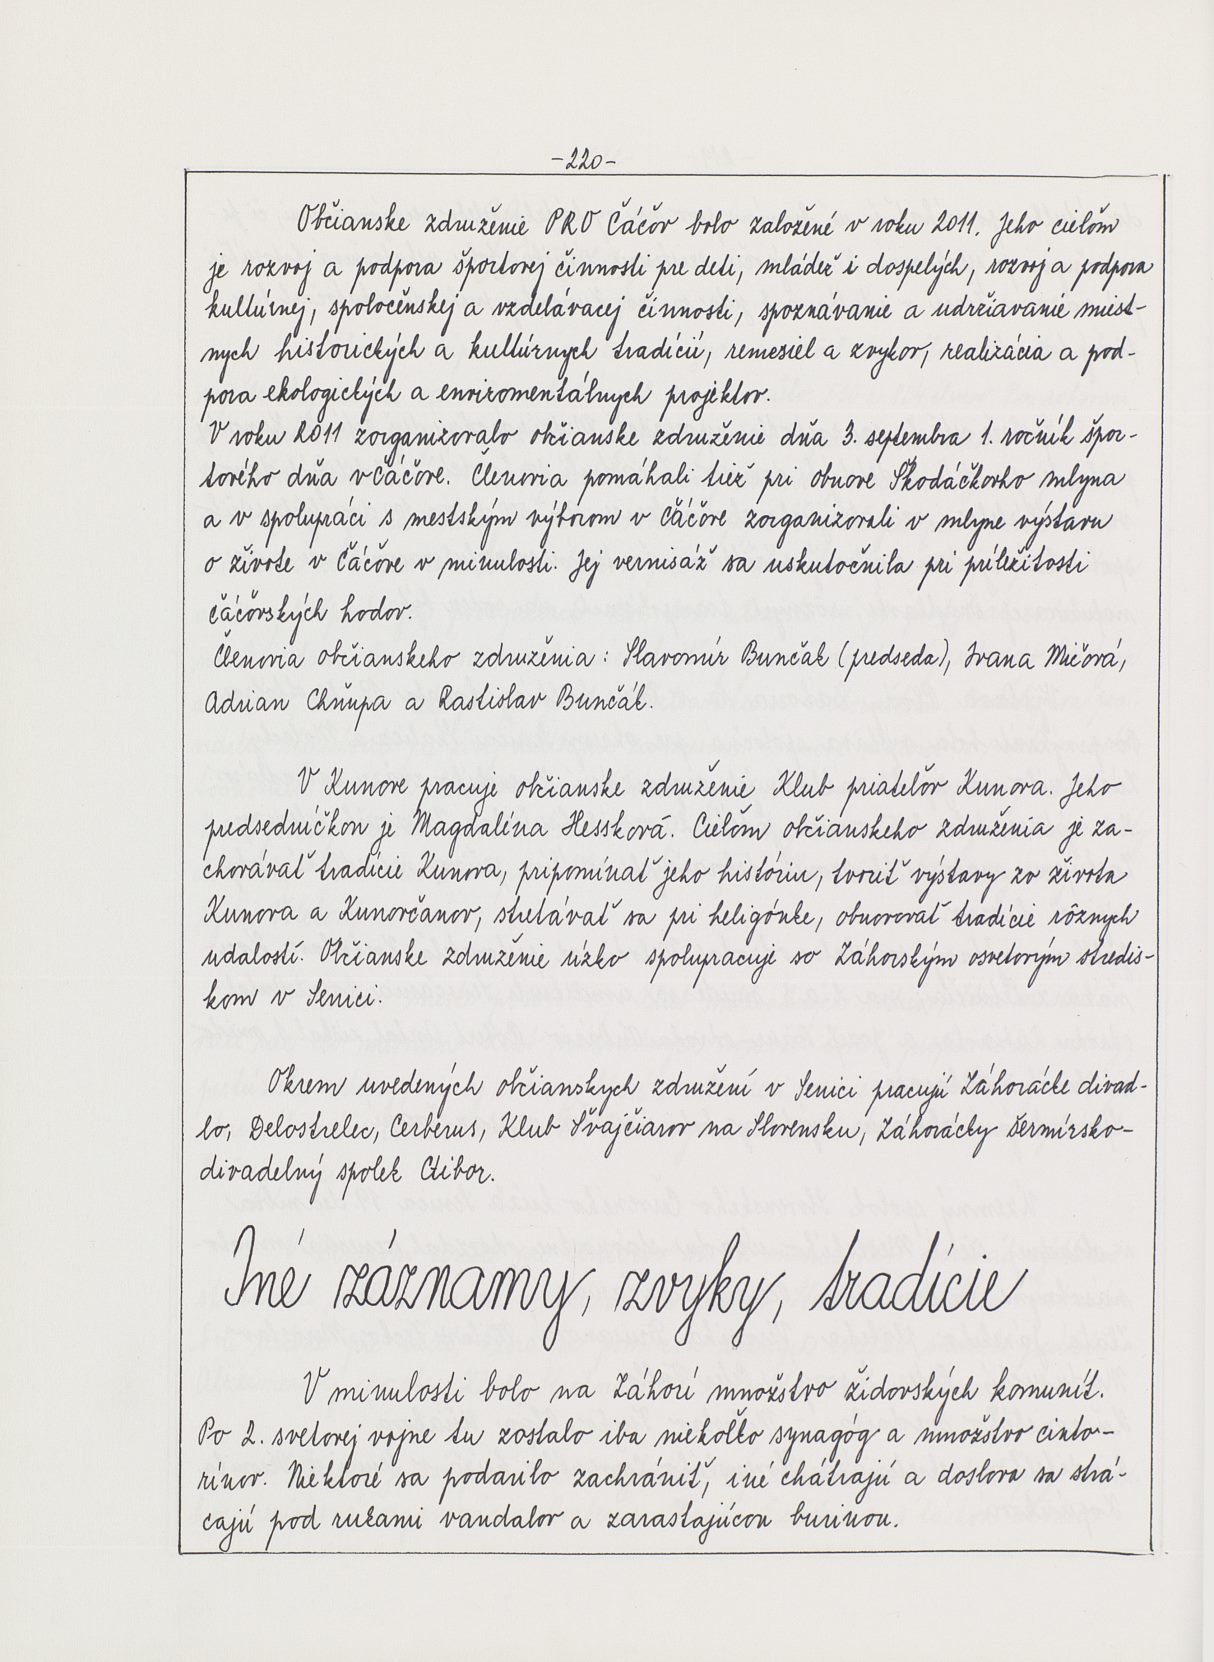 -220-
Občianske združenie PRO Čáčov bolo založené v roku 2011. Jeho cieľom
je rozvoj a podpora športovej činnosti pre deti, mládež i dospelých, rozvoj a podpora
kultúrnej, spoločenskej a vzdelávacej činnosti, spoznávanie a udržiavanie miest-
nych historických a kultúrnych tradícií, remesiel a zvykov, realizácia a pod-
pora ekologických a enviromentálnych projektov.
V roku 2011 zorganizovalo občianske združenie dňa 3. septembra 1. ročník špor-
tového dňa v Čáčove. Členovia pomáhali tiež pri obnove Škodáčkovho mlyna
a v spolupráci s mestským výborom v Čáčove zorganizovali v mlyne výstavu
o živote v Čáčove v minulosti. Jej vernisáž sa uskutočnila pri príležitosti
čáčovských hodov.
Členovia občianskeho združenia: Slavomír Bunčák (predseda), Ivana Mičová,
Adrian Chňupa a Rastislav Bunčák.
V Kunove pracuje občianske združenie Klub priateľov Kunova. Jeho
predsedníčkou je Magdaléna Hessková. Cieľom občianskeho združenia je za-
chovávať tradície Kunova, pripomínať jeho históriu, tvoriť výstavy zo života
Kunova a Kunovčanov, stretávať sa pri heligónke, obnovovať tradície rôznych
udalostí. Občianske združenie úzko spolupracuje so Záhorským osvetovým stredis-
kom v Senici.
Okrem uvedených občianskych združení v Senici pracujú Záhorácke divad-
lo, Delostrelec, Cerberus, Klub Švajčiarov na Slovensku, Záhorácky šermírsko-
divadelný spolek Ctibor.
Iné záznamy, zvyky, tradície
V minulosti bolo na Záhorí množstvo židovských komunít.
Po 2. svetovej vojne tu zostalo iba niekoľko synagóg a množstvo cinto-
rínov. Niektoré sa podarilo zachrániť, iné chátrajú a doslova sa strá-
cajú pod rukami vandalov a zarastajúcou burinou.